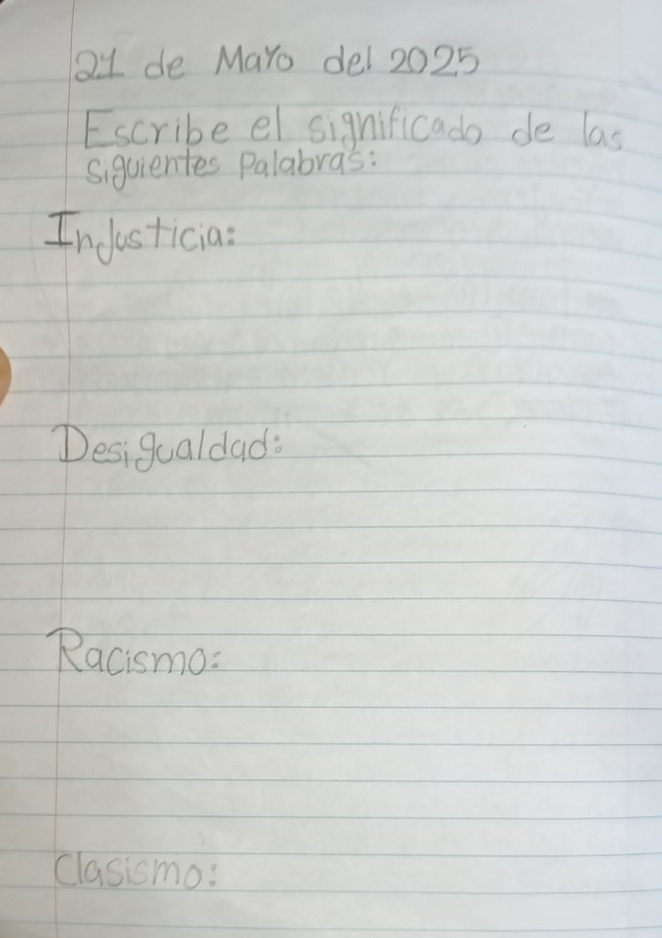 21 de Mayo del 2025
Escribe el significado de las
siguientes palabras:
Injusticia:
Desigualdad:
Racismo:
Clasismo: